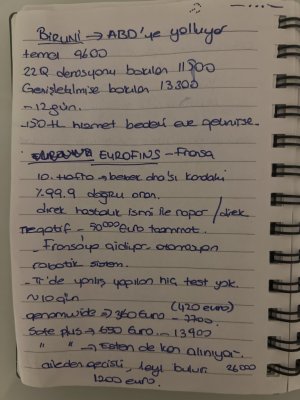 BİRUNİ → ABD'ye yolluyor
temel 9600
22Q delesyonu bakılan 11500
Genişletilmişe bakılan 13300
~12 gün.
-150 tl hizmet bedeli eve gelinirse.
EUROFINS - Fransa
10. hafta → bebek dna'sı kandaki
%99.9 doğru oran.
direk hastalık ismi ile rapor / direk
negatif - 50000 Euro taahhüt.
- Fransa'ya gidiyor otomasyon
robotik sistem.
- Tr'de yanlış yapılan hiç test yok.
~10 gün
(420 euro)
genomwide → 360 Euro - 7700
Safe plus → 650 Euro - 13900
" " → eşten de kan alınıyor.
aileden geçişli, bulur 26000
1200 euro.